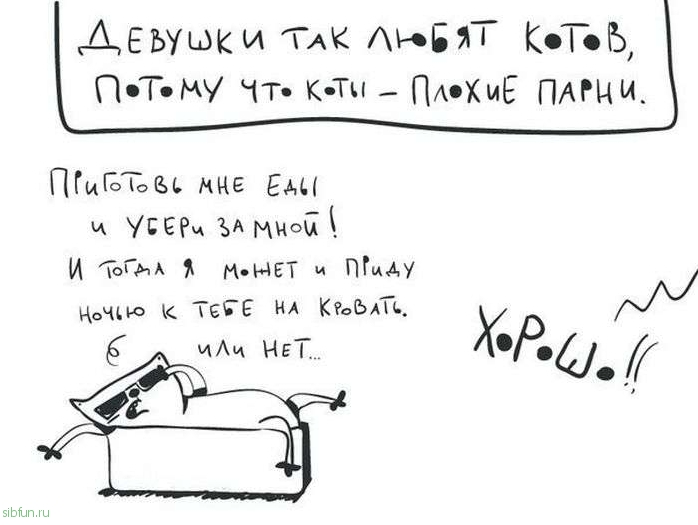 ДЕВУШКИ ТАК ЛЮБЯТ КОТОВ,
ПОТОМУ ЧТО КОТЫ – ПЛОХИЕ ПАРНИ.
ПРИГОТОВЬ МНЕ ЕДЫ
И УБЕРИ ЗА МНОЙ!
И ТОГДА Я МОЖЕТ И ПРИДУ
НОЧЬЮ К ТЕБЕ НА КРОВАТЬ.
ИЛИ НЕТ...
ХОРОШО!!
sibfun.ru